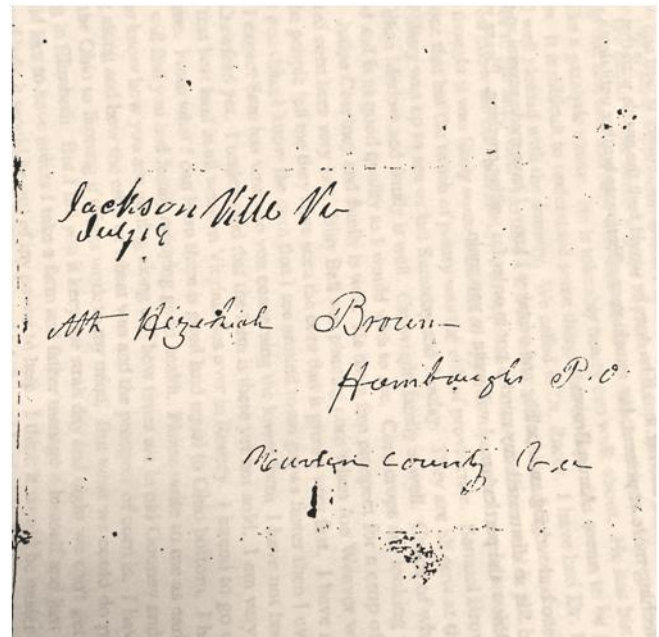 Jackson Ville Va
July 19
Hezekiah Brown
Hambaughs P.O
County Va